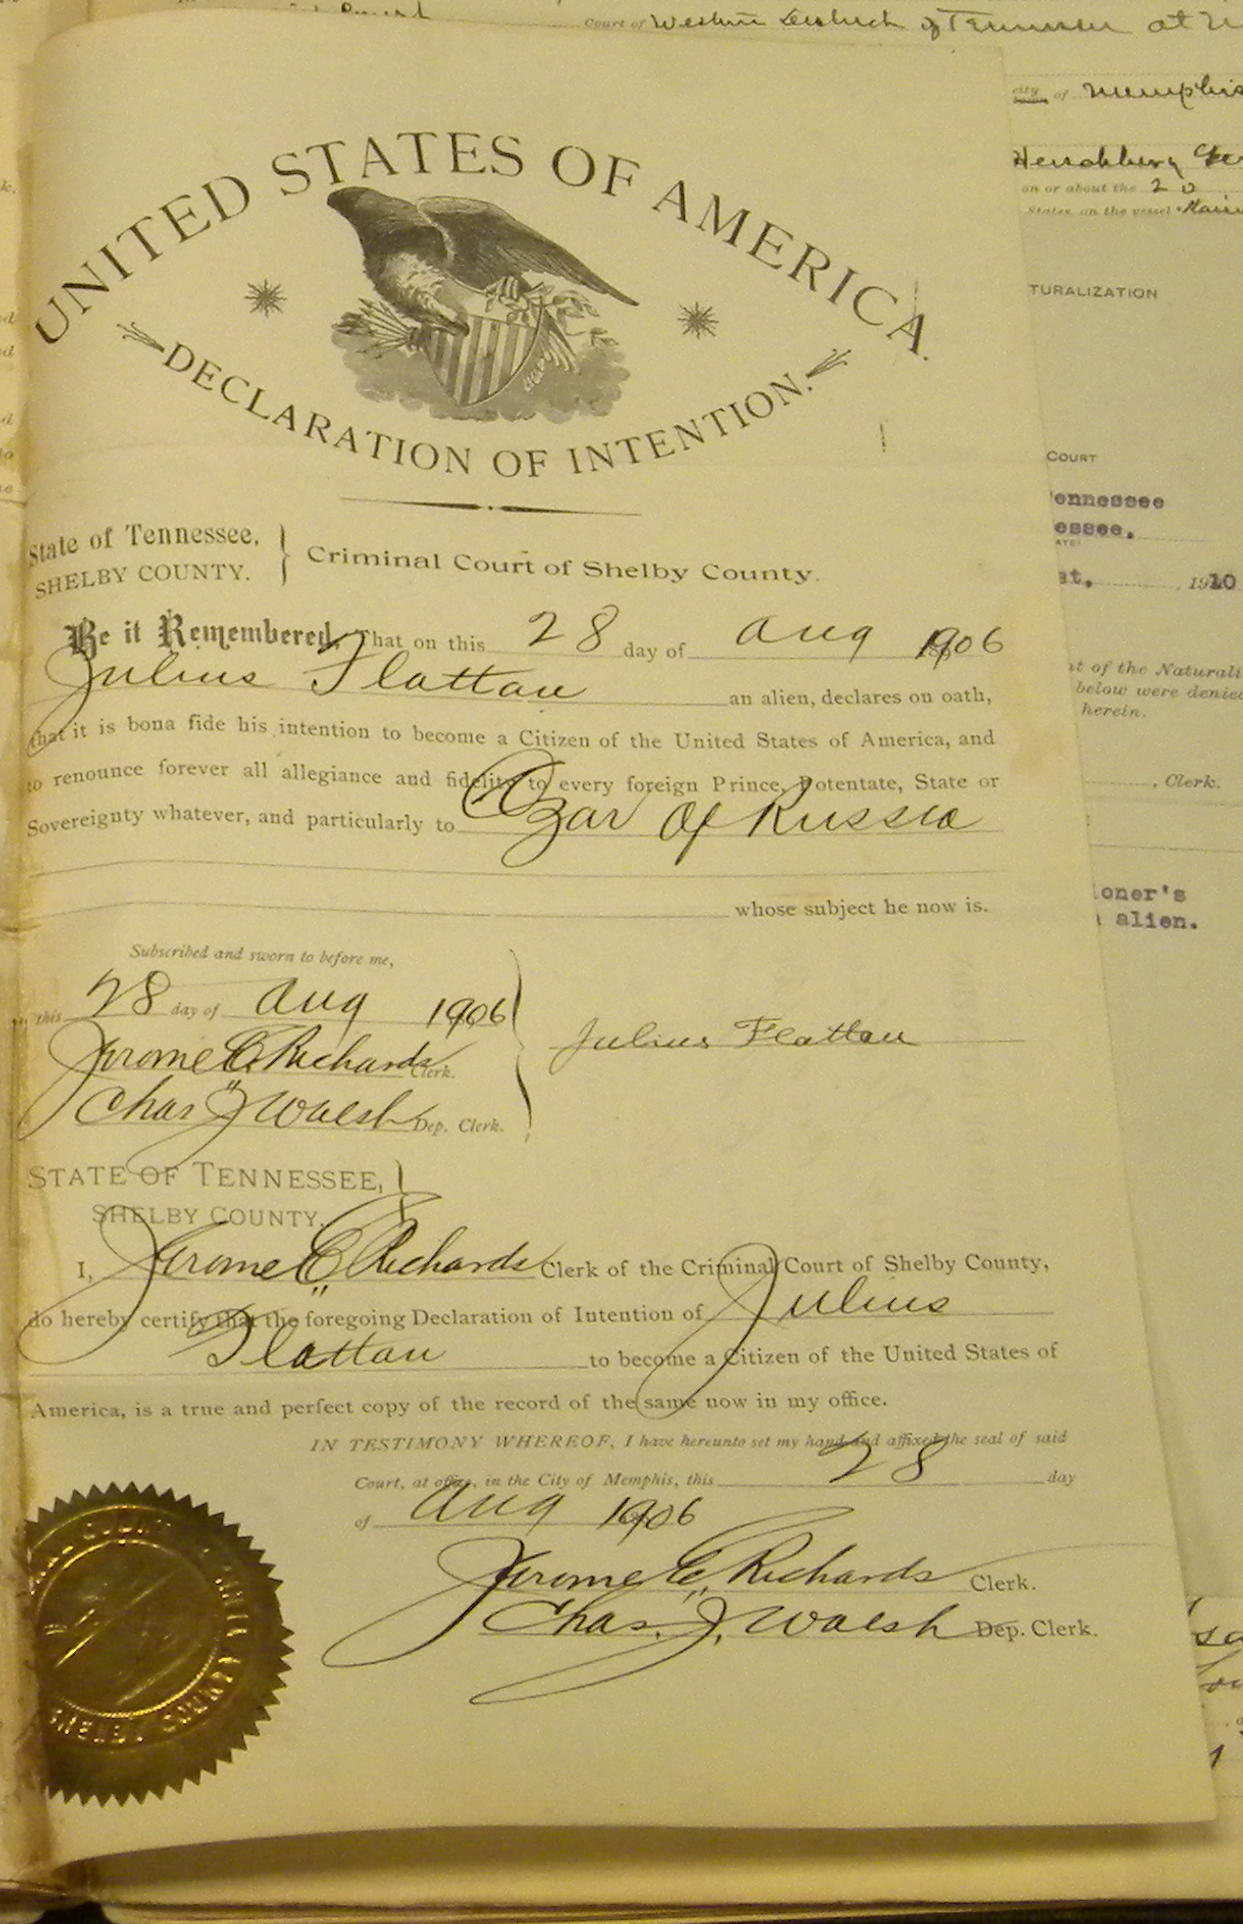 Court of Western District of Tennessee at
city of Memphis
on or about the 20
States, on the vessel
UNITED STATES OF AMERICA.
DECLARATION OF INTENTION.
TURALIZATION
COURT
ennessee
essee.
State of Tennessee,
SHELBY COUNTY.
Criminal Court of Shelby County.
st. , 1910
Be it Remembered, That on this 28 day of Aug 1906
Julius Flattau an alien, declares on oath,
that it is bona fide his intention to become a Citizen of the United States of America, and
to renounce forever all allegiance and fidelity to every foreign Prince, Potentate, State or
Sovereignty whatever, and particularly to Czar Of Russia
whose subject he now is.
nt of the Naturali
below were denied
herein.
, Clerk.
ioner's
alien.
Subscribed and sworn to before me,
this 28 day of Aug 1906
Jerome E. Richards Clerk.
Chas J Walsh Dep. Clerk.
Julius Flattau
STATE OF TENNESSEE,
SHELBY COUNTY.
I, Jerome E. Richards Clerk of the Criminal Court of Shelby County,
do hereby certify that the foregoing Declaration of Intention of Julius
Flattau to become a Citizen of the United States of
America, is a true and perfect copy of the record of the same now in my office.
IN TESTIMONY WHEREOF, I have hereunto set my hand and affixed the seal of said
Court, at office, in the City of Memphis, this 28 day
of Aug 1906
Jerome E. Richards Clerk.
Chas. J. Walsh Dep. Clerk.
SHELBY COUNTY